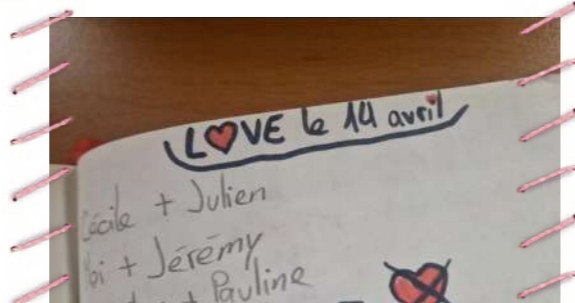 LOVE le 14 avril
Cécile + Julien
+ Jérémy
+ Pauline